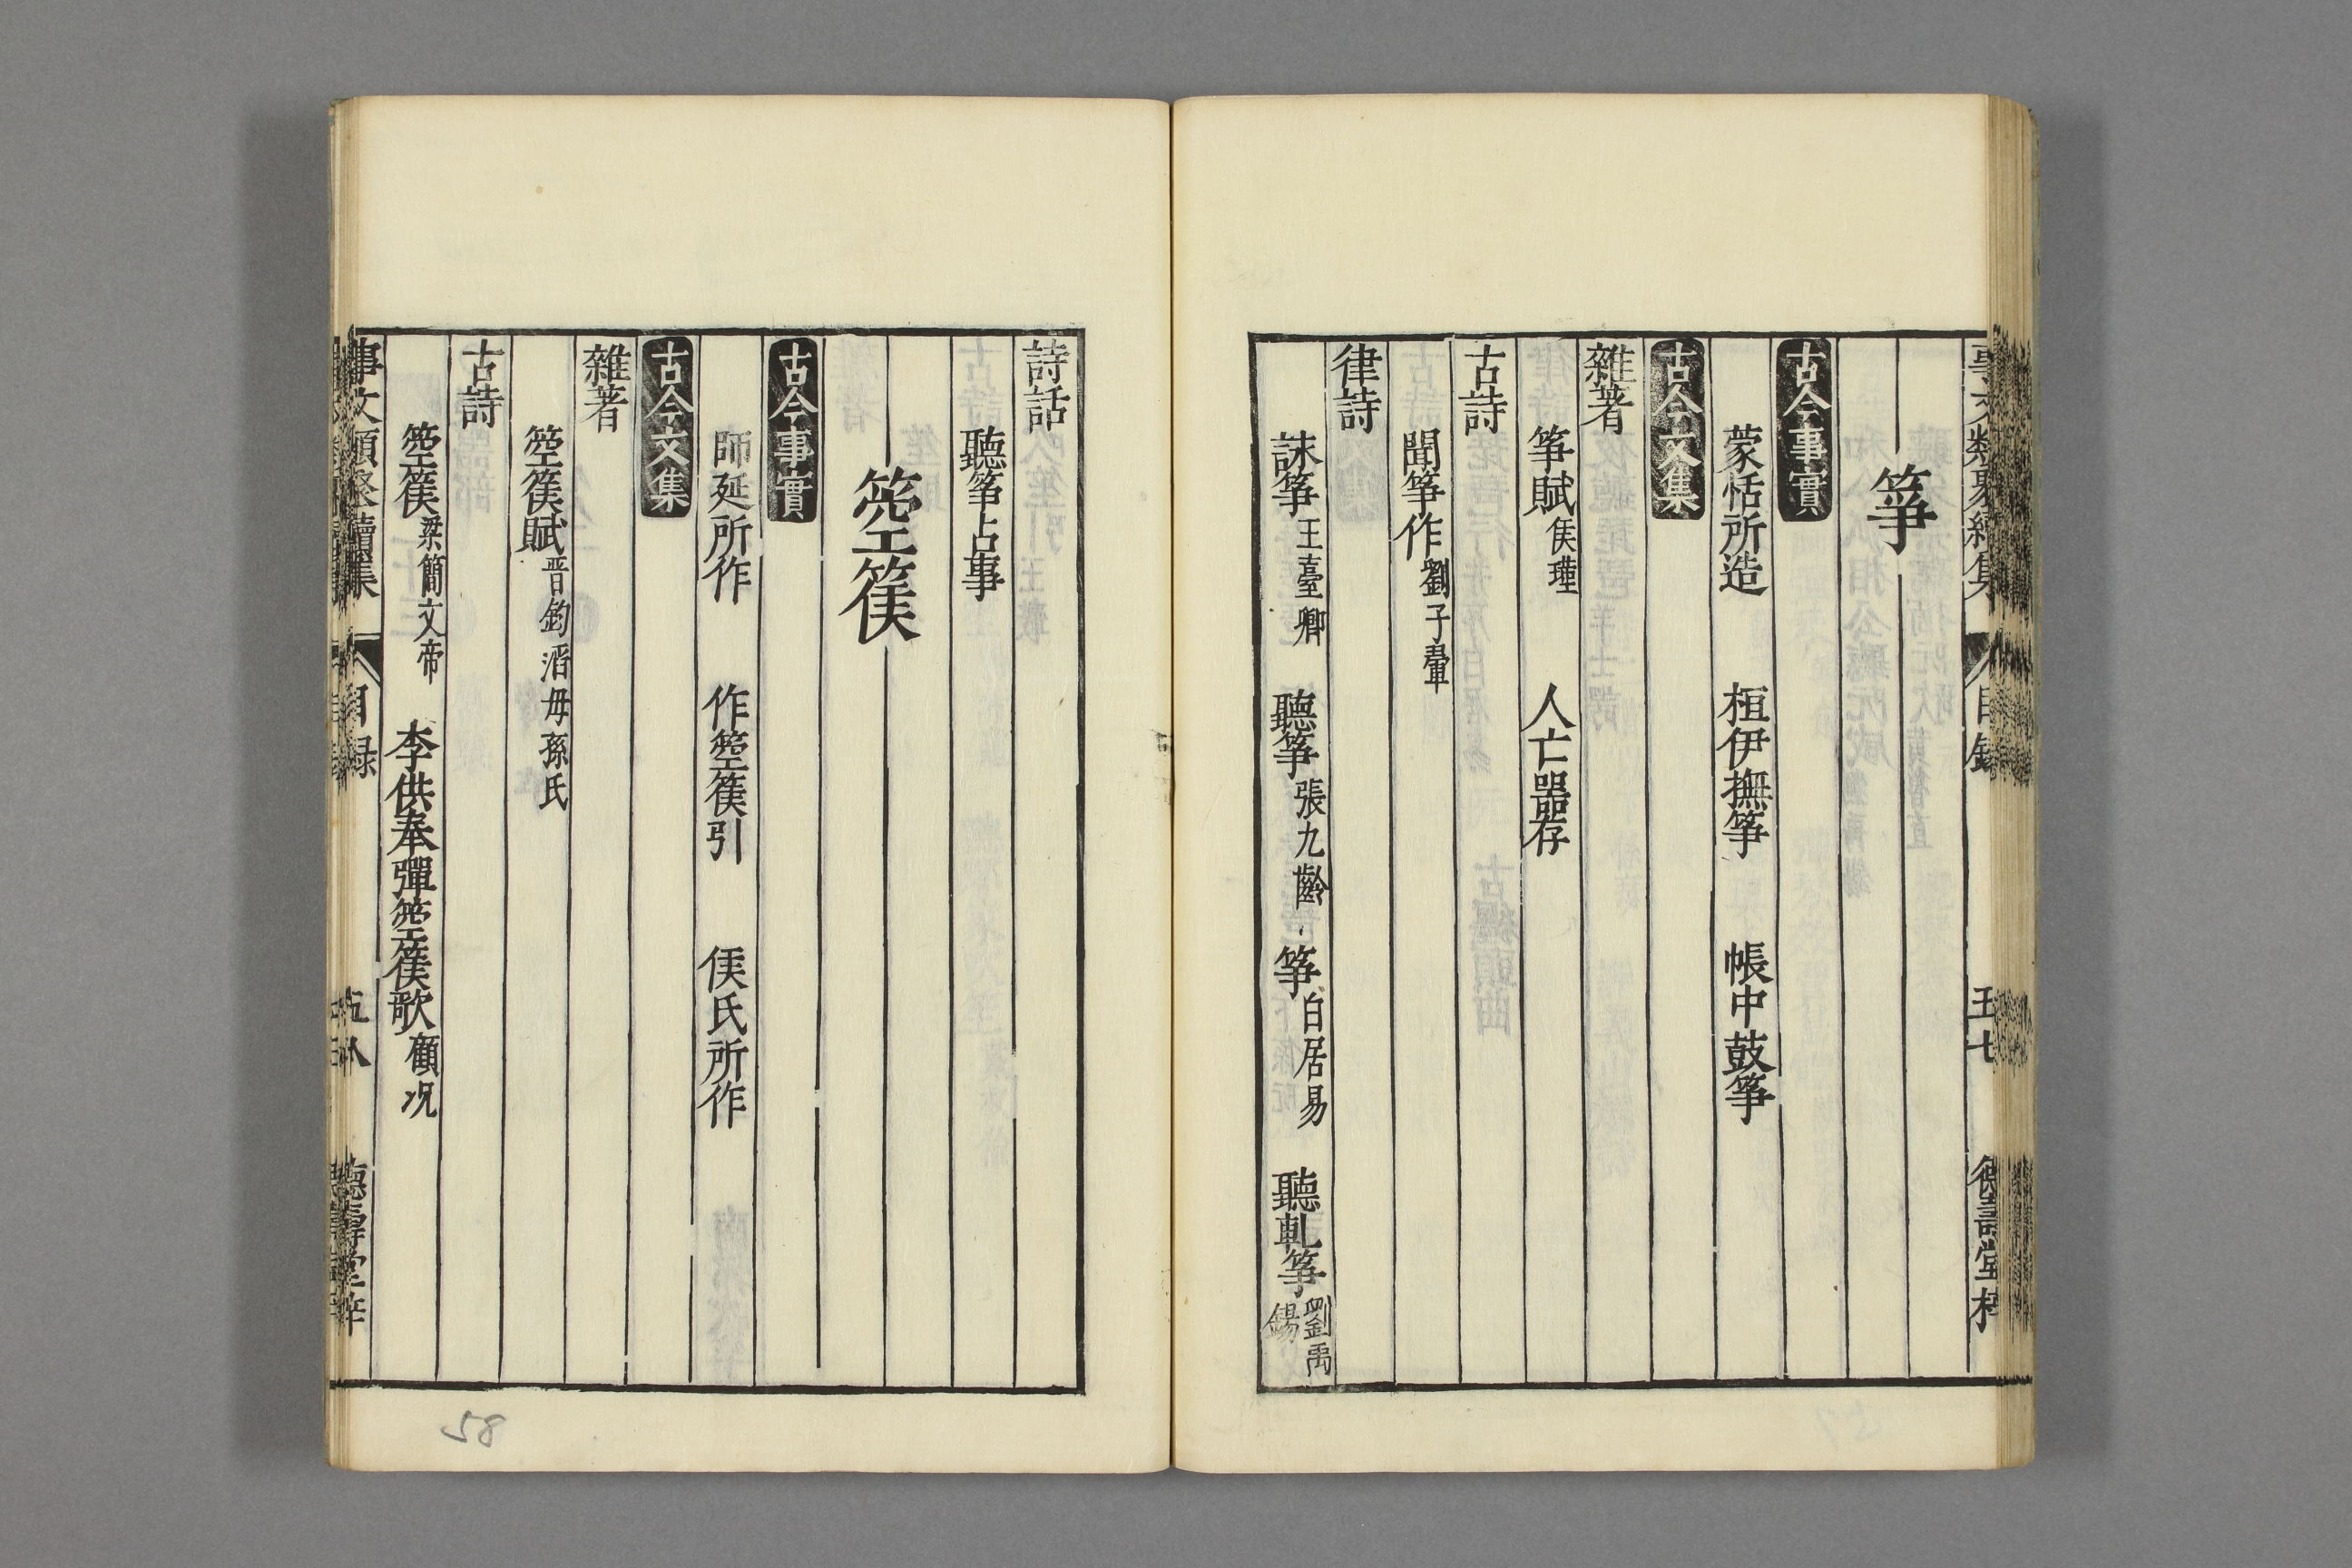 箏
古今事實
蒙恬所造　桓伊撫箏　帳中鼓箏
古今文集
雜著
箏賦 侯瑾　人亡器存
古詩
聞箏作 劉子翬
律詩
詠箏 王臺卿　聽箏 張九齡　箏 白居易　聽軋箏 劉禹錫
詩話
聽箏占事
箜篌
古今事實
師延所作　作箜篌引　侯氏所作
古今文集
雜著
箜篌賦 晉鈞滔母孫氏
古詩
箜篌 梁簡文帝　李供奉彈箜篌歌 顧况
事文類聚續集　目録　五八　德壽堂梓
58